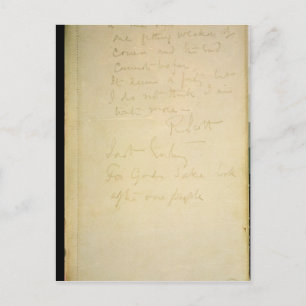 are getting weaker of
course and the end
cannot be far
It seems a pity but
I do not think I can
write more
R Scott
Last Entry
For Gods sake look
after our people